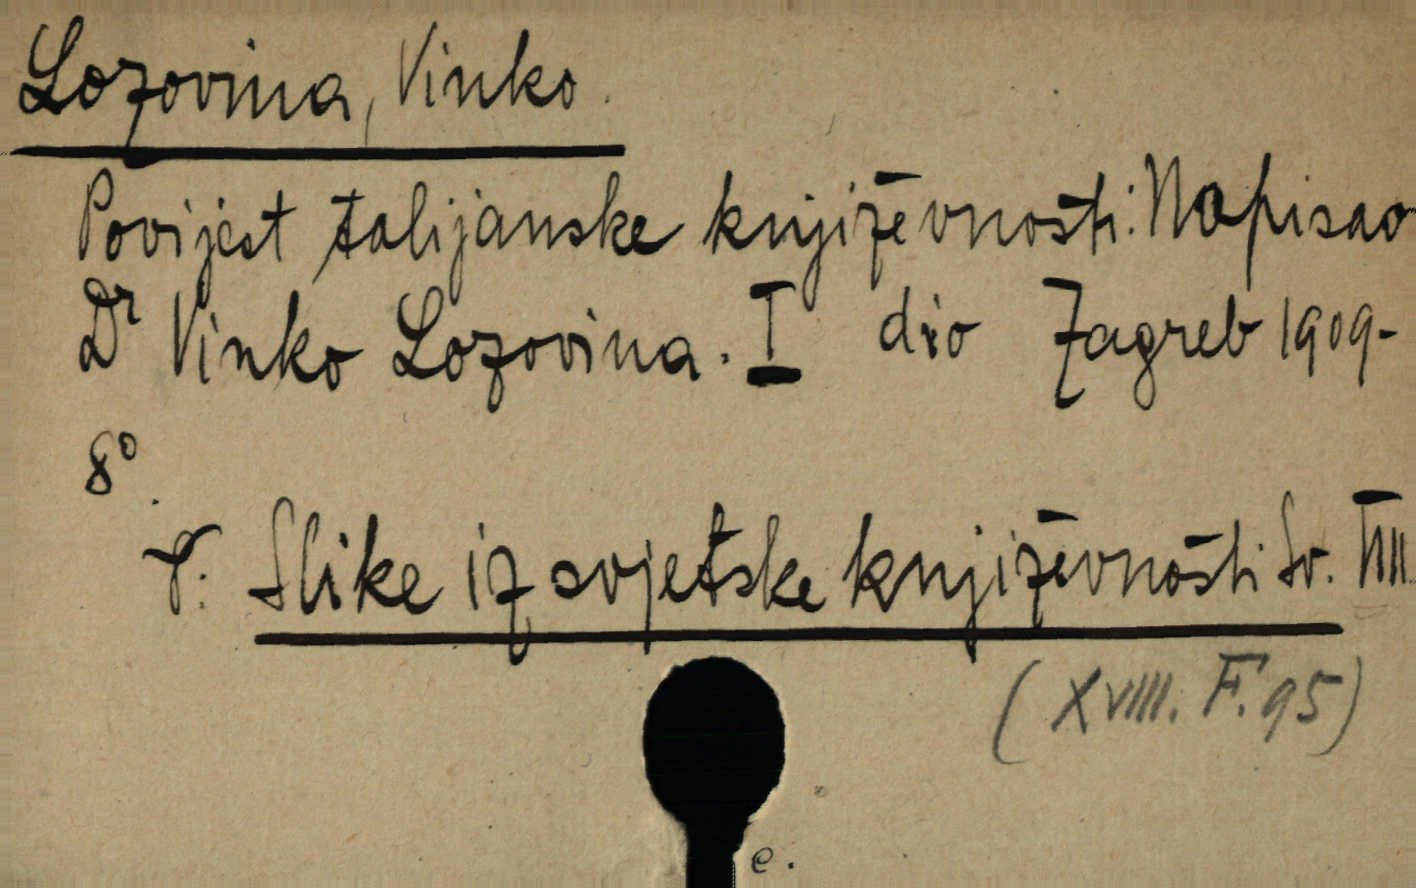 Lozovina, Vinko.
Povijest talijanske književnosti. Napisao
Dr Vinko Lozovina. I dio Zagreb 1909-
8°.
V. Slike iz svjetske književnosti Sv. VIII.
(XVIII. F. 95)
e.